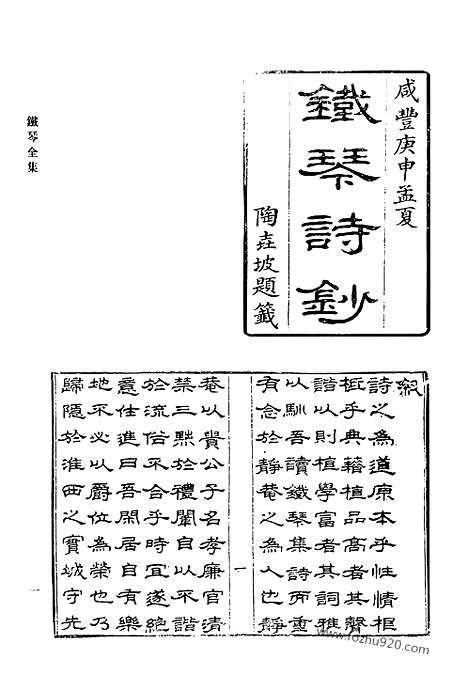 咸豐庚申孟夏
鐵琴詩鈔
陶垚坡題籤
鐵琴全集
敘
詩之為道原本乎性情柜
柾乎典籍植品高者其聲
諧以則植學富者其詞雅
以馴吾讀鐵琴集詩而重
有念於靜菴之為人也靜
一
菴以貴公子名孝廉官清
禁三黜於禮闈自以不諧
於流俗不合乎時宜遂絕
意仕進曰吾閑居自有樂
地不必以爵位為榮也乃
歸隱於淮西之寶城守先
一
www.rozhu920.com